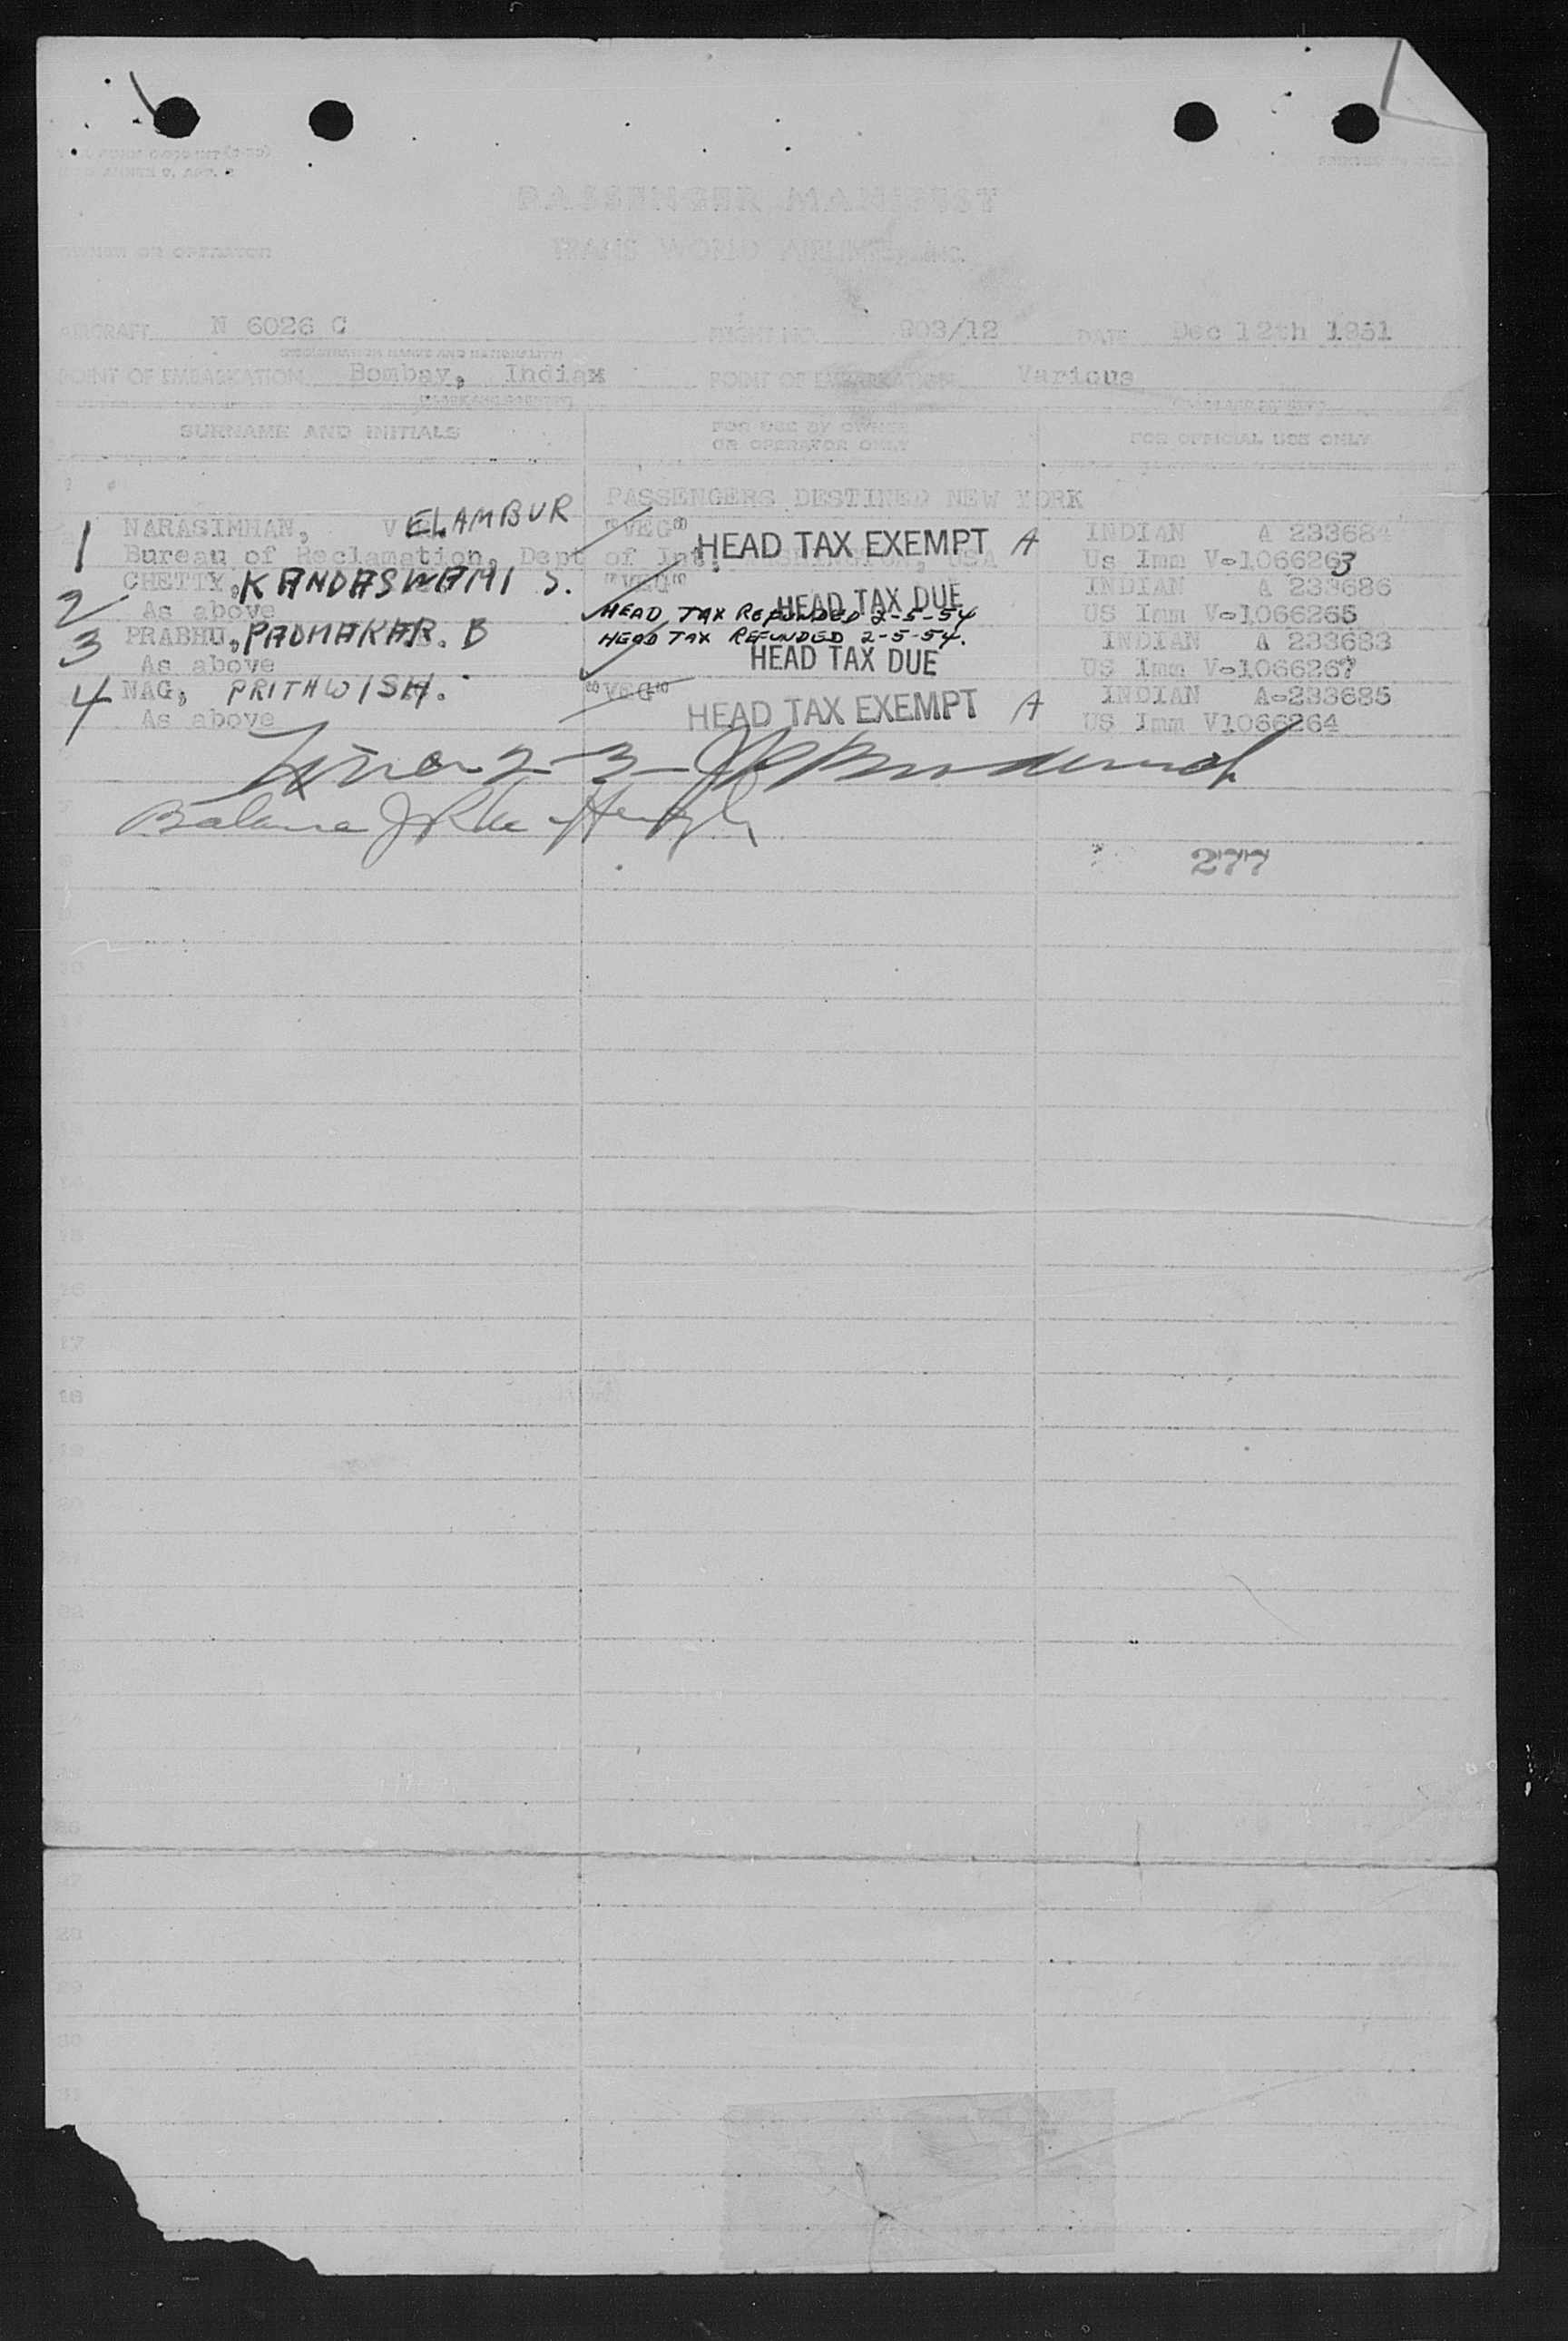 PASSENGER MANIFEST
OWNER OR OPERATOR TRANS WORLD AIRLINES, INC.
AIRCRAFT N 6026 C FLIGHT NO. 903/12 DATE Dec 12th 1951
(REGISTRATION MARKS AND NATIONALITY)
POINT OF EMBARKATION Bombay, India POINT OF EMBARKATION Various
SURNAME AND INITIALS FOR USE BY OWNER OR OPERATOR ONLY FOR OFFICIAL USE ONLY
PASSENGERS DESTINED NEW YORK
1 NARASIMHAN, VELAMBUR "VEG" HEAD TAX EXEMPT A INDIAN A 233684
Bureau of Reclamation, Dept of Int. WASHINGTON, USA Us Imm V-1066263
2 CHETTY, KANDASWAMI S. "VEG" HEAD TAX DUE INDIAN A 233686
As above HEAD TAX REFUNDED 2-5-54 US Imm V-1066265
3 PRABHU, PADMAKAR. B HEAD TAX REFUNDED 2-5-54. INDIAN A 233683
As above HEAD TAX DUE US Imm V-1066267
4 NAG, PRITHWISH. "VEG" HEAD TAX EXEMPT A INDIAN A-233685
As above US Imm V1066264
2-3-
Balance
277
10
15
16
17
18
19
20
22
26
28
29
30